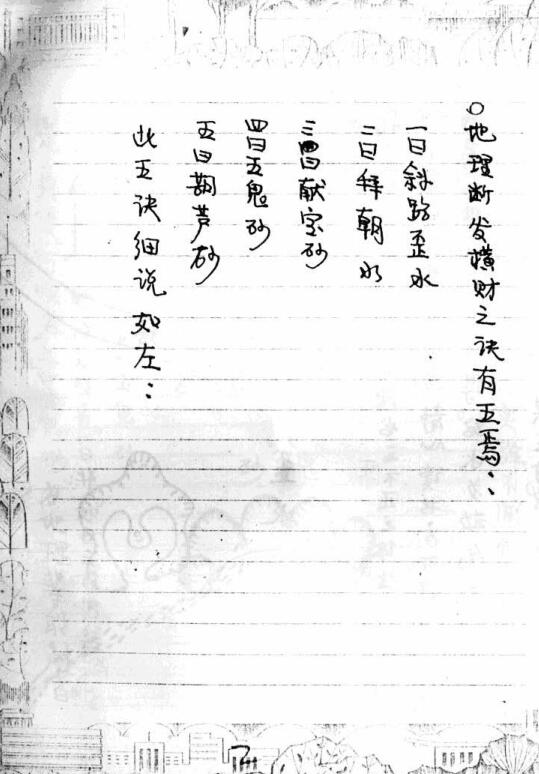 ○地理断发横财之诀有五焉：
一曰斜路歪水
二曰拜朝水
三曰献宝砂
四曰五鬼砂
五曰葫芦砂
此五诀细说如左：